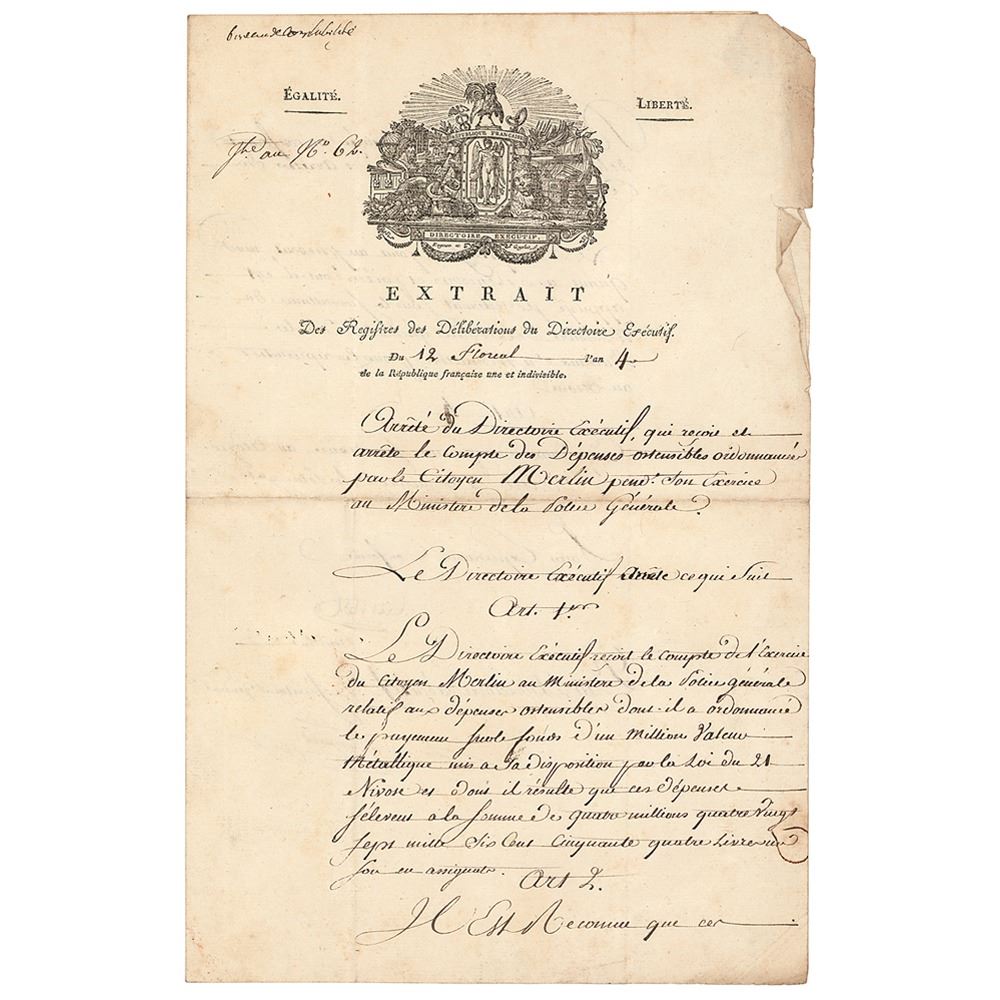 bureau de Comptabilité
ÉGALITÉ.
LIBERTÉ.
au N° 62.
RÉPUBLIQUE FRANÇAISE
DIRECTOIRE EXÉCUTIF.
EXTRAIT
Des Registres des Délibérations du Directoire Exécutif.
Du 12 Floreal l'an 4e
de la République française une et indivisible.
Arrêté du Directoire Exécutif, qui reçoit et
arrête le Compte des Dépenses ostensibles ordonnancées
par le Citoyen Merlin pend.t Son Exercice
au Ministere de la Police Générale.
Le Directoire Exécutif arrête ce qui Suit
Art. 1.er
Le Directoire Exécutif reçoit le compte de l'Exercice
du Citoyen Merlin au Ministére de la Police générale
relatif aux dépenses ostensibles dont il a ordonnancé
le payement sur le fonds d'un Million Valeur
Métallique mis a Sa disposition par la Loi du 21
Nivose et dont il résulte que ces dépenses
s'élevent a la somme de quatre millions quatre Vingt
sept mille Six Cent Cinquante quatre Livres un
sou en assignats.
Art 2.
Il Est Reconnu que ces